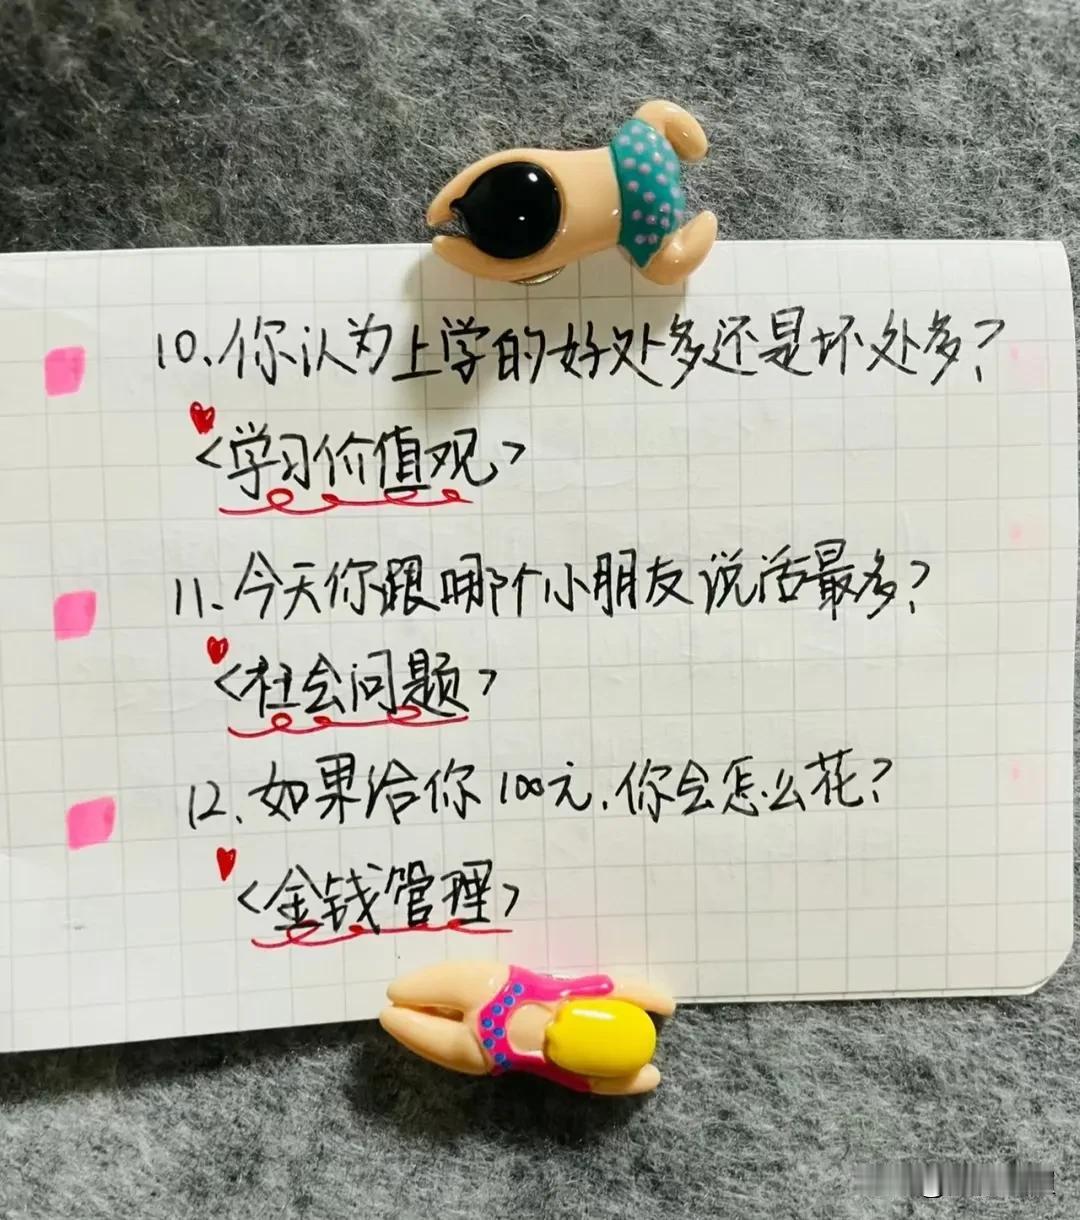 10、你认为上学的好处多还是坏处多？
<学习价值观>
11、今天你跟哪个小朋友说话最多？
<社会问题>
12、如果给你100元，你会怎么花？
<金钱管理>